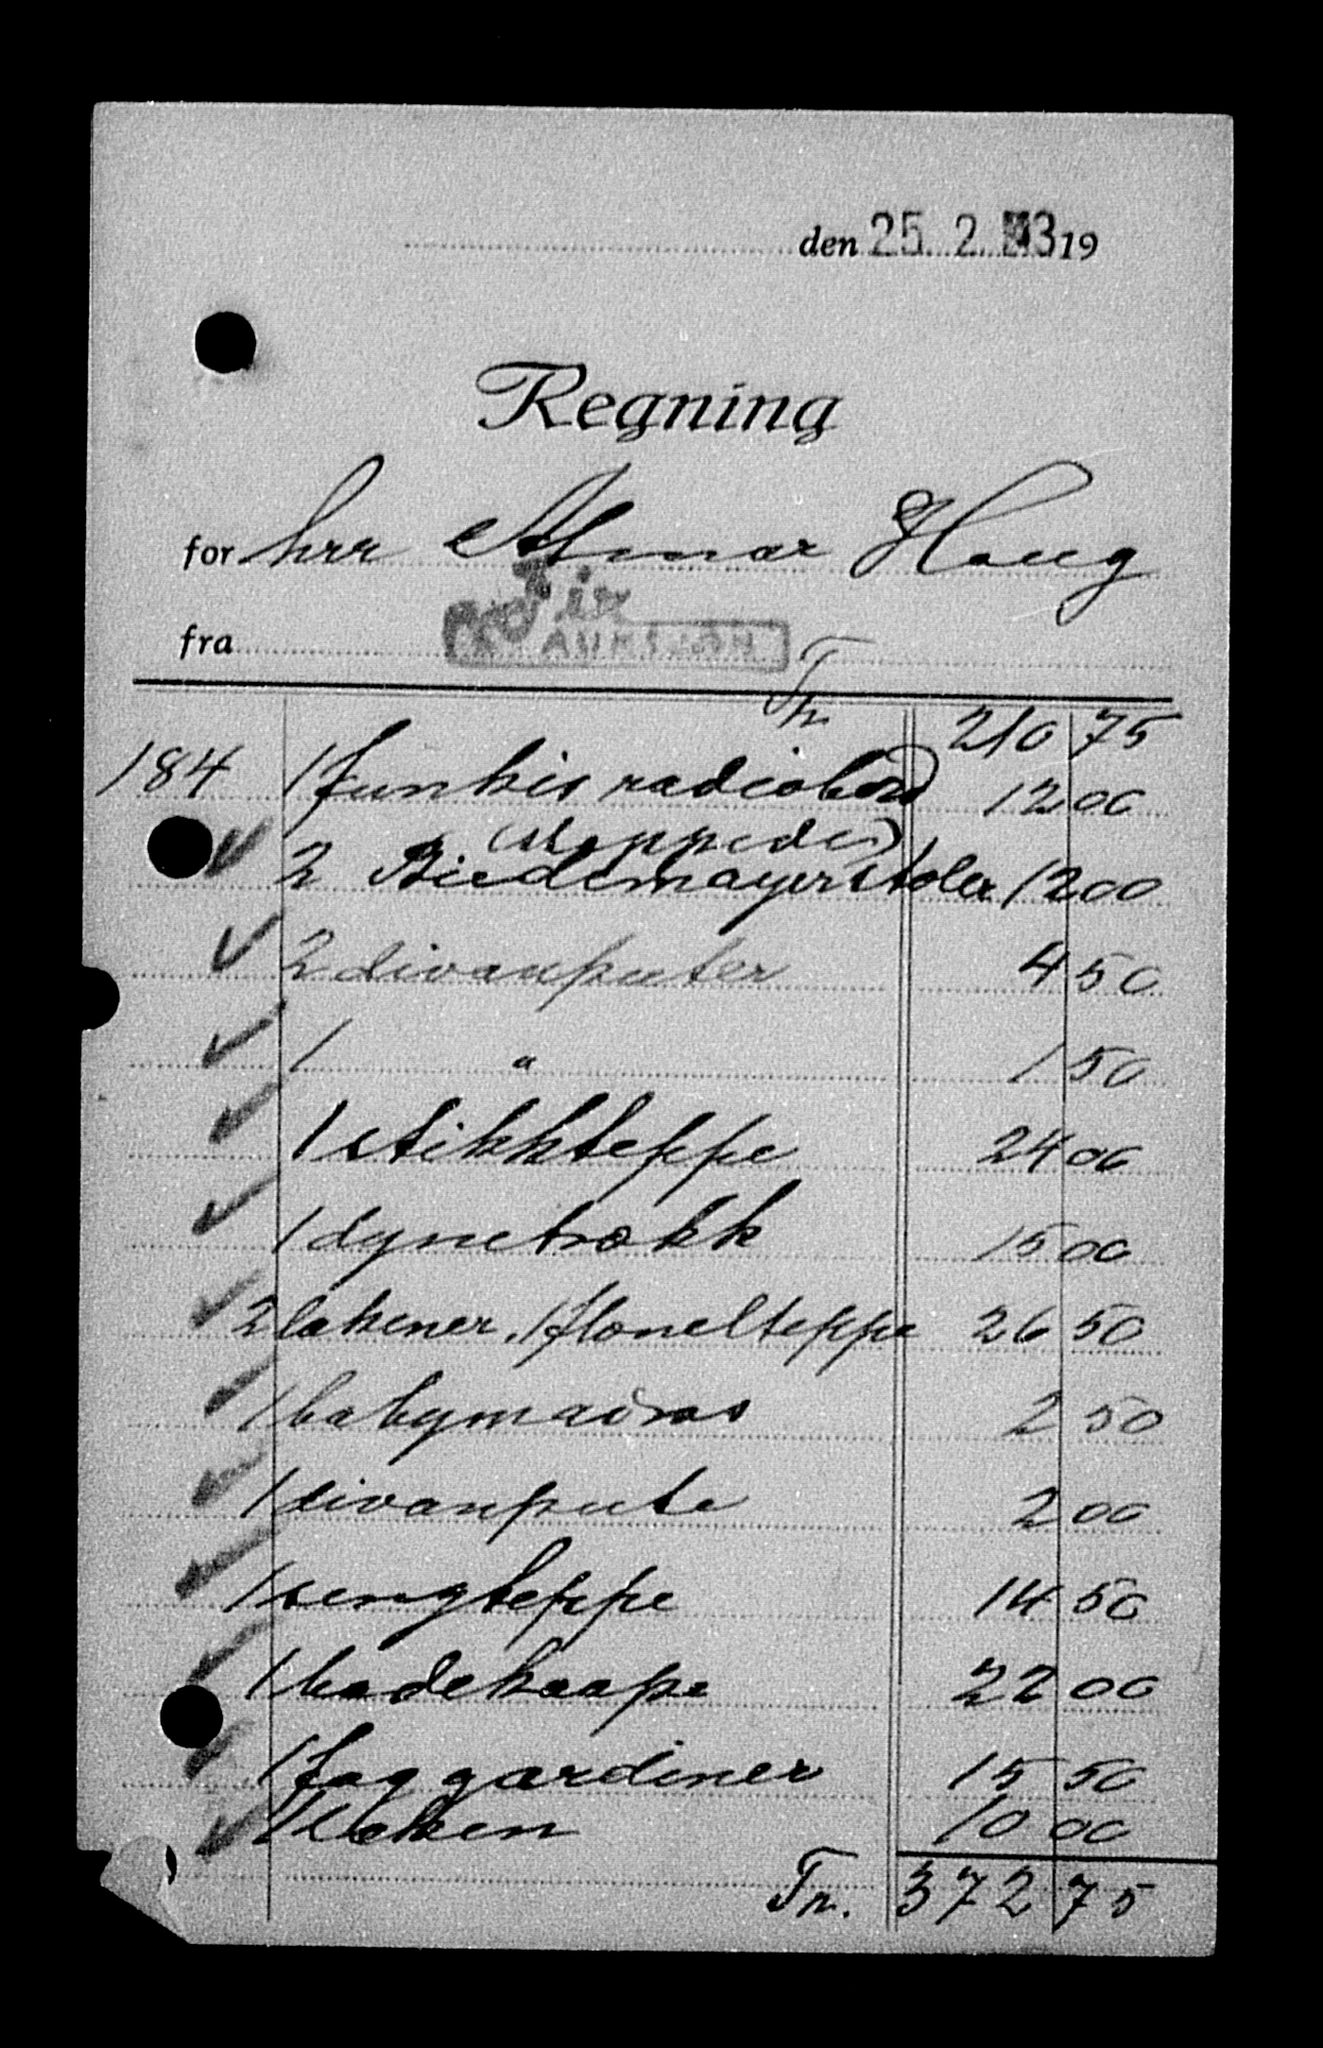 den 25. 2. 43 19
Regning
for hrr Almar Haug
fra AUKSJON
Tr. 210 75
184 1 funkis radiobord 12 00
(stoppede)
2 Biedemayerstoler 12 00
2 divanputer 4 50
1 " 1 50
1 stikkteppe 24 00
1 dynetrekk 15 00
2 lakener, 1 flonelteppe 26 50
1 babymadras 2 50
1 divanpute 2 00
1 sengteppe 14 50
1 badekaape 22 00
1 fag gardiner 15 50
1 laken 10 00
Tr. 372 75